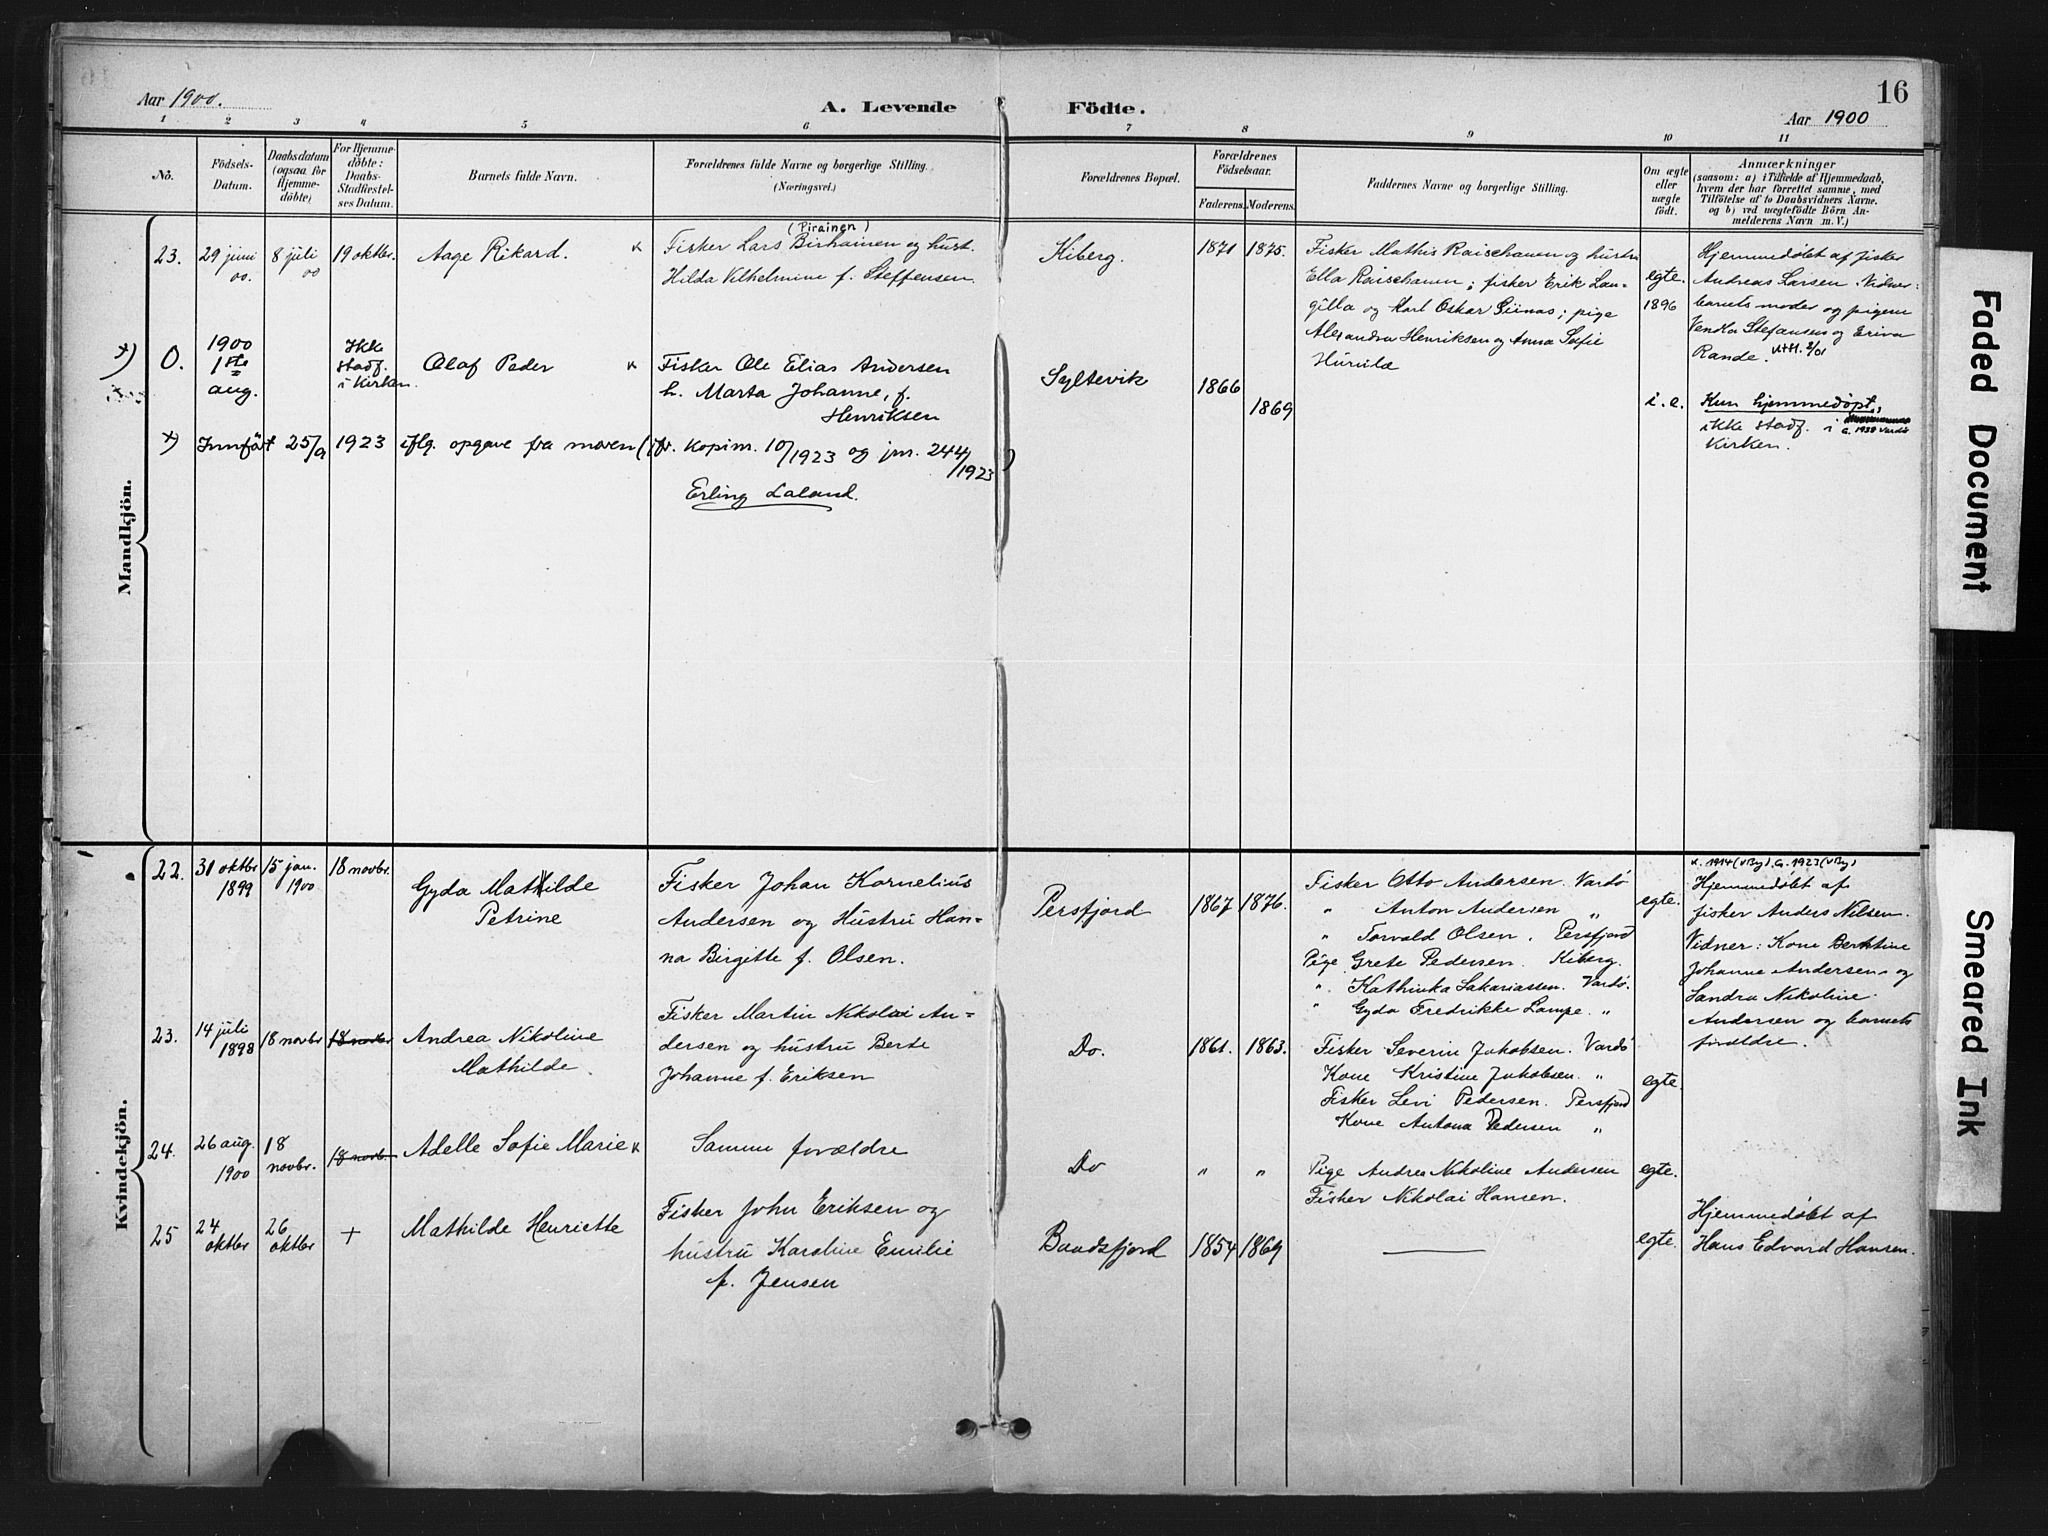 Aar 1900.
A. Levende Födte.
Aar 1900
16
1 2 3 4 5 6 7 8 9 10 11
No.
Födsels-
Datum.
Daabsdatum
(ogsaa for
Hjemme-
döbte)
For Hjemme-
döbte:
Daabs-
Stadfæstel-
ses Datum.
Barnets fulde Navn.
Forældrenes fulde Navne og borgerlige Stilling.
(Næringsvei.)
Forældrenes Bopæl.
Forældrenes
Födselsaar.
Faderens. Moderens.
Faddernes Navne og borgerlige Stilling.
Om ægte
eller
uægte
födt.
Anmærkninger
(saasom: a) i Tilfælde af Hjemmedaab,
hvem der har forrettet samme, med
Tilföielse af to Daabsvidners Navne.
og b) ved uægtefödte Börn An-
melderens Navn m. V.)
Mandkjön.
23.
29 juni
00.
8 juli
00
19 oktbr.
Aage Rikard.
(Pirainen)
Fisker Lars Birhainen og hust.
Hilda Vilhelmine f. Steffensen
Kiberg.
1871 1875.
Fisker Mathis Raischanen og hustru
Ella Raischanen; fisker Erik Lan-
gilla og Karl Oskar Siinas; pige
Alexandra Henriksen og Anna Sofie
Hurula
egte.
1896
Hjemmedøbt af fisker
Andreas Larsen. Vidner:
barnets moder og pigerne
Vendla Stefansen og
Rande.
x) O.
1900
1ste
aug.
Ikke
stadf.
i kirken.
Olaf Peder
Fisker Ole Elias Andersen
h. Marta Johanne, f.
Henriksen
Syltevik
1866
1869
i. e.
Kun hjemmedøpt,
ikke stadf. i
kirken.
G. 1930 Vardø
x) Innført 25/9 1923 iflg. opgave fra moren (jfr. kopinr. 10/1923 og jnr. 244/1923)
Erling Laland.
Kvindekjön.
22.
31 oktbr
1899
15 jan.
1900
18 novbr.
Gyda Mathilde
Petrine
Fisker Johan Kornelius
Andersen og Hustru Han-
na Birgitte f. Olsen.
Persfjord
1867 1876.
Fisker Otto Andersen. Vardø
" Anton Andersen "
" Torvald Olsen. Persfjord
Pige Grete Pedersen. Kiberg.
" Kathinka Sakariassen. Vardø.
" Gyda Fredrikke Lampe. "
egte.
K. 1914 (V By), G. 1923 (V By)
Hjemmedøbt af
fisker Anders Nilsen.
Vidner: Kone Berntine
Johanne Andersen og
Sandra Nikoline
Andersen og barnets
forældre.
23.
14 juli
1898
18 novbr
18 novbr
Andrea Nikoline
Mathilde.
Fisker Martin Nikolai An-
dersen og hustru Berte
Johanne f. Eriksen
Do.
1861. 1863.
Fisker Severin Jakobsen. Vardø
Kone Kristine Jakobsen. "
Fisker Levi Pedersen. Persfjord
Kone Antona Pedersen "
egte.
24.
26 aug.
1900
18
novbr.
18 novb.
Adelle Sofie Marie
Samme forældre
Do
" "
Pige Andrea Nikoline Andersen
Fisker Nikolai Hansen.
egte.
25
24
oktbr
26
oktbr
+
Mathilde Henriette
Fisker John Eriksen og
hustru Karoline Emilie
f. Jensen
Baadsfjord
1854 1869
egte.
Hjemmedøbt af
Hans Edvard Hansen.
Faded Document
Smeared Ink